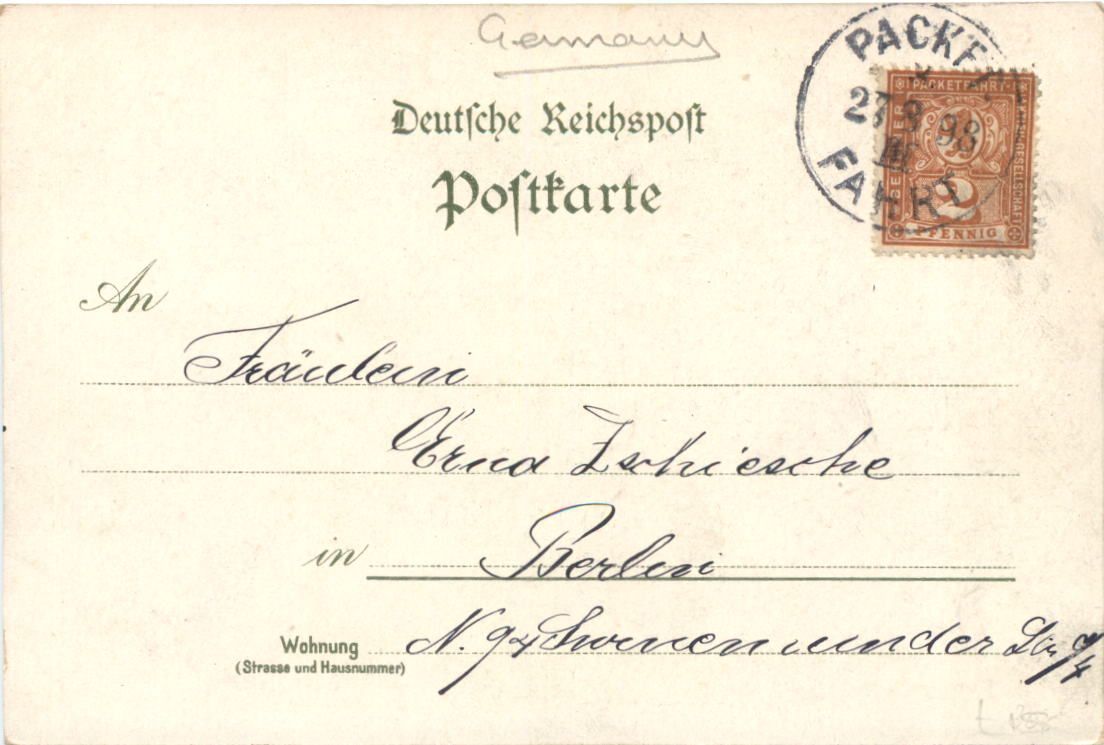 Germany
Deutsche Reichspost
Postkarte
PACKET
27 8 98
III
FAHRT
BERLINER PACKETFAHRT-
GESELLSCHAFT
2
PFENNIG
An
Fräulein
Erna Zschiesche
in Berlin
Wohnung N.
(Strasse und Hausnummer)